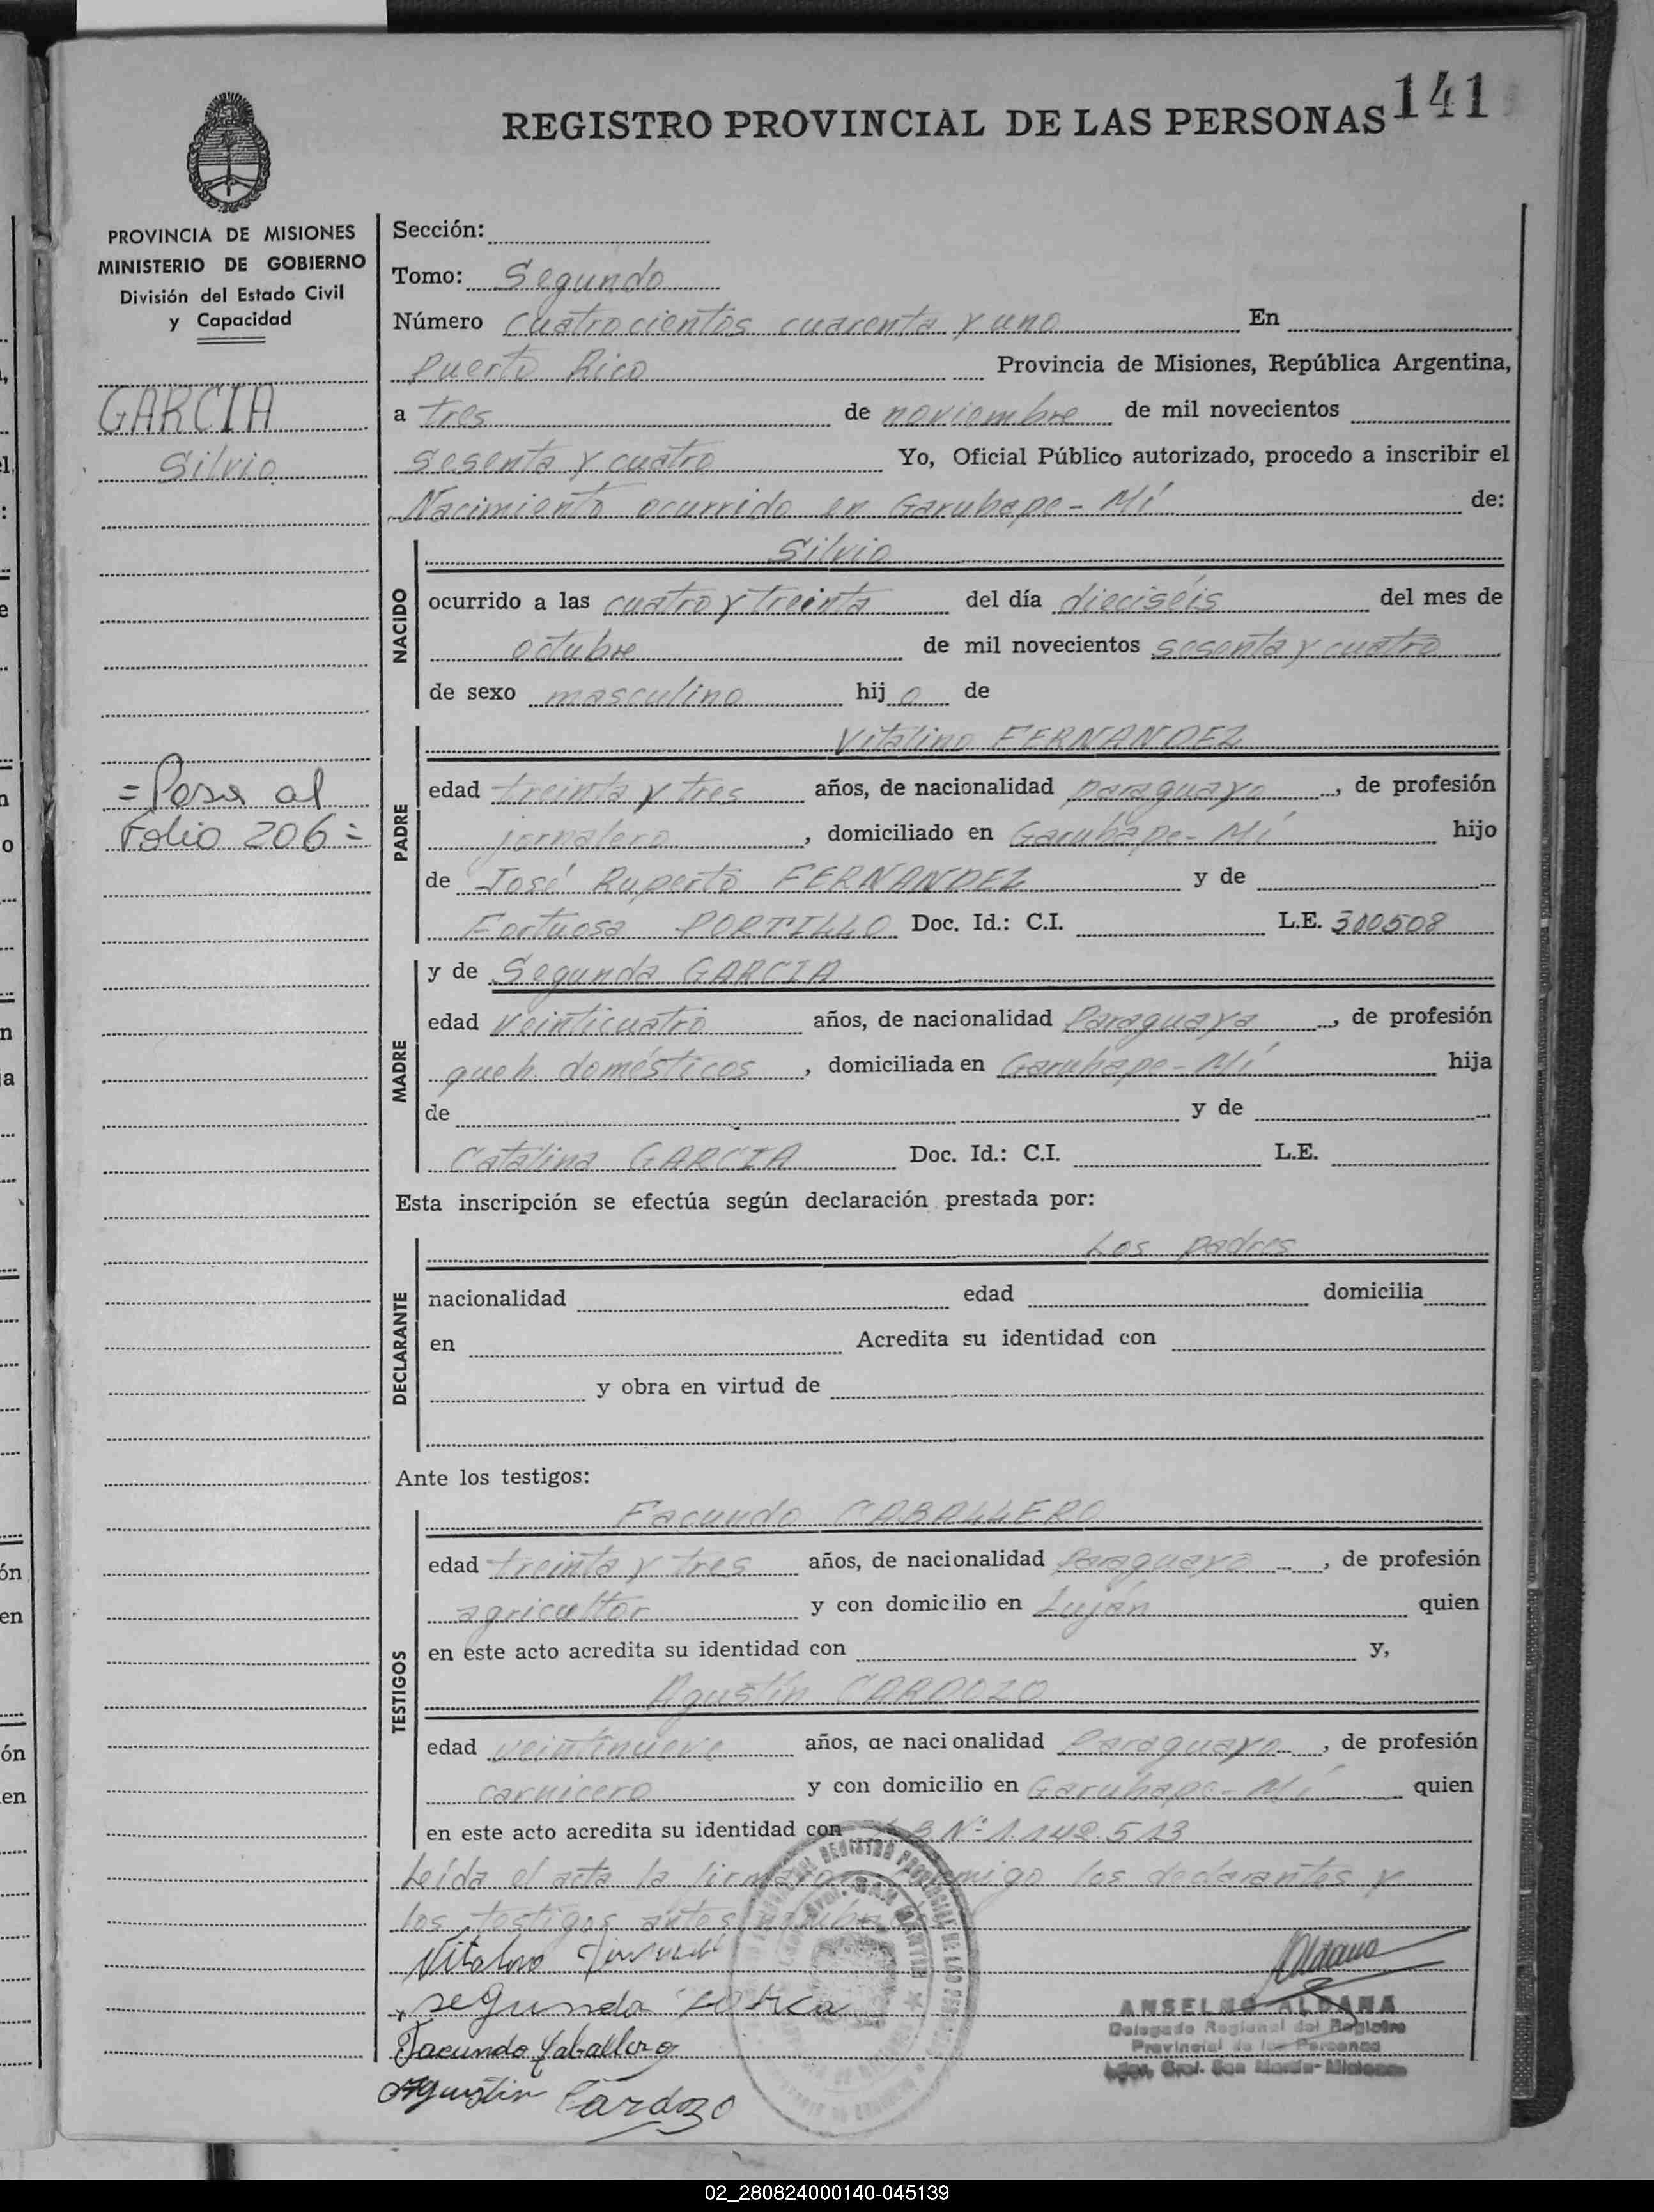 141
REGISTRO PROVINCIAL DE LAS PERSONAS
PROVINCIA DE MISIONES
MINISTERIO DE GOBIERNO
División del Estado Civil
y Capacidad
GARCIA
Silvio
= Pasa al
Folio 206 =
Sección:
Tomo: Segundo
Número Cuatrocientos cuarenta y uno En
Puerto Rico Provincia de Misiones, República Argentina,
a tres de noviembre de mil novecientos
sesenta y cuatro Yo, Oficial Público autorizado, procedo a inscribir el
Nacimiento ocurrido en Garuhape-Mí de:
NACIDO
Silvio
ocurrido a las cuatro y treinta del día dieciséis del mes de
octubre de mil novecientos sesenta y cuatro
de sexo masculino hij o de
PADRE
Vitalino FERNANDEZ
edad treinta y tres años, de nacionalidad paraguayo, de profesión
jornalero, domiciliado en Garuhape-Mí hijo
de José Ruperto FERNANDEZ y de
Fortuosa PORTILLO Doc. Id.: C.I. L.E. 300508
MADRE
y de Segunda GARCIA
edad veinticuatro años, de nacionalidad Paraguaya, de profesión
queh. domésticos, domiciliada en Garuhape-Mí hija
de y de
Catalina GARCIA Doc. Id.: C.I. L.E.
Esta inscripción se efectúa según declaración prestada por:
DECLARANTE
Los padres
nacionalidad edad domicilia
en Acredita su identidad con
y obra en virtud de
Ante los testigos:
TESTIGOS
Facundo CABALLERO
edad treinta y tres años, de nacionalidad Paraguaya, de profesión
agricultor y con domicilio en Luján quien
en este acto acredita su identidad con y,
Agustín CARDOZO
edad veintinueve años, de nacionalidad Paraguayo, de profesión
carnicero y con domicilio en Garuhape-Mí quien
en este acto acredita su identidad con Nº 1.142.513
Leída el acta la firman los declarantes y
los testigos antes
Vitalino
Segunda
Facundo Caballero
Agustin Cardozo
Aldana
ANSELMO ALDANA
Delegado Regional del Registro
Provincial de las Personas
Gral. San Martín - Misiones
02_280824000140-045139